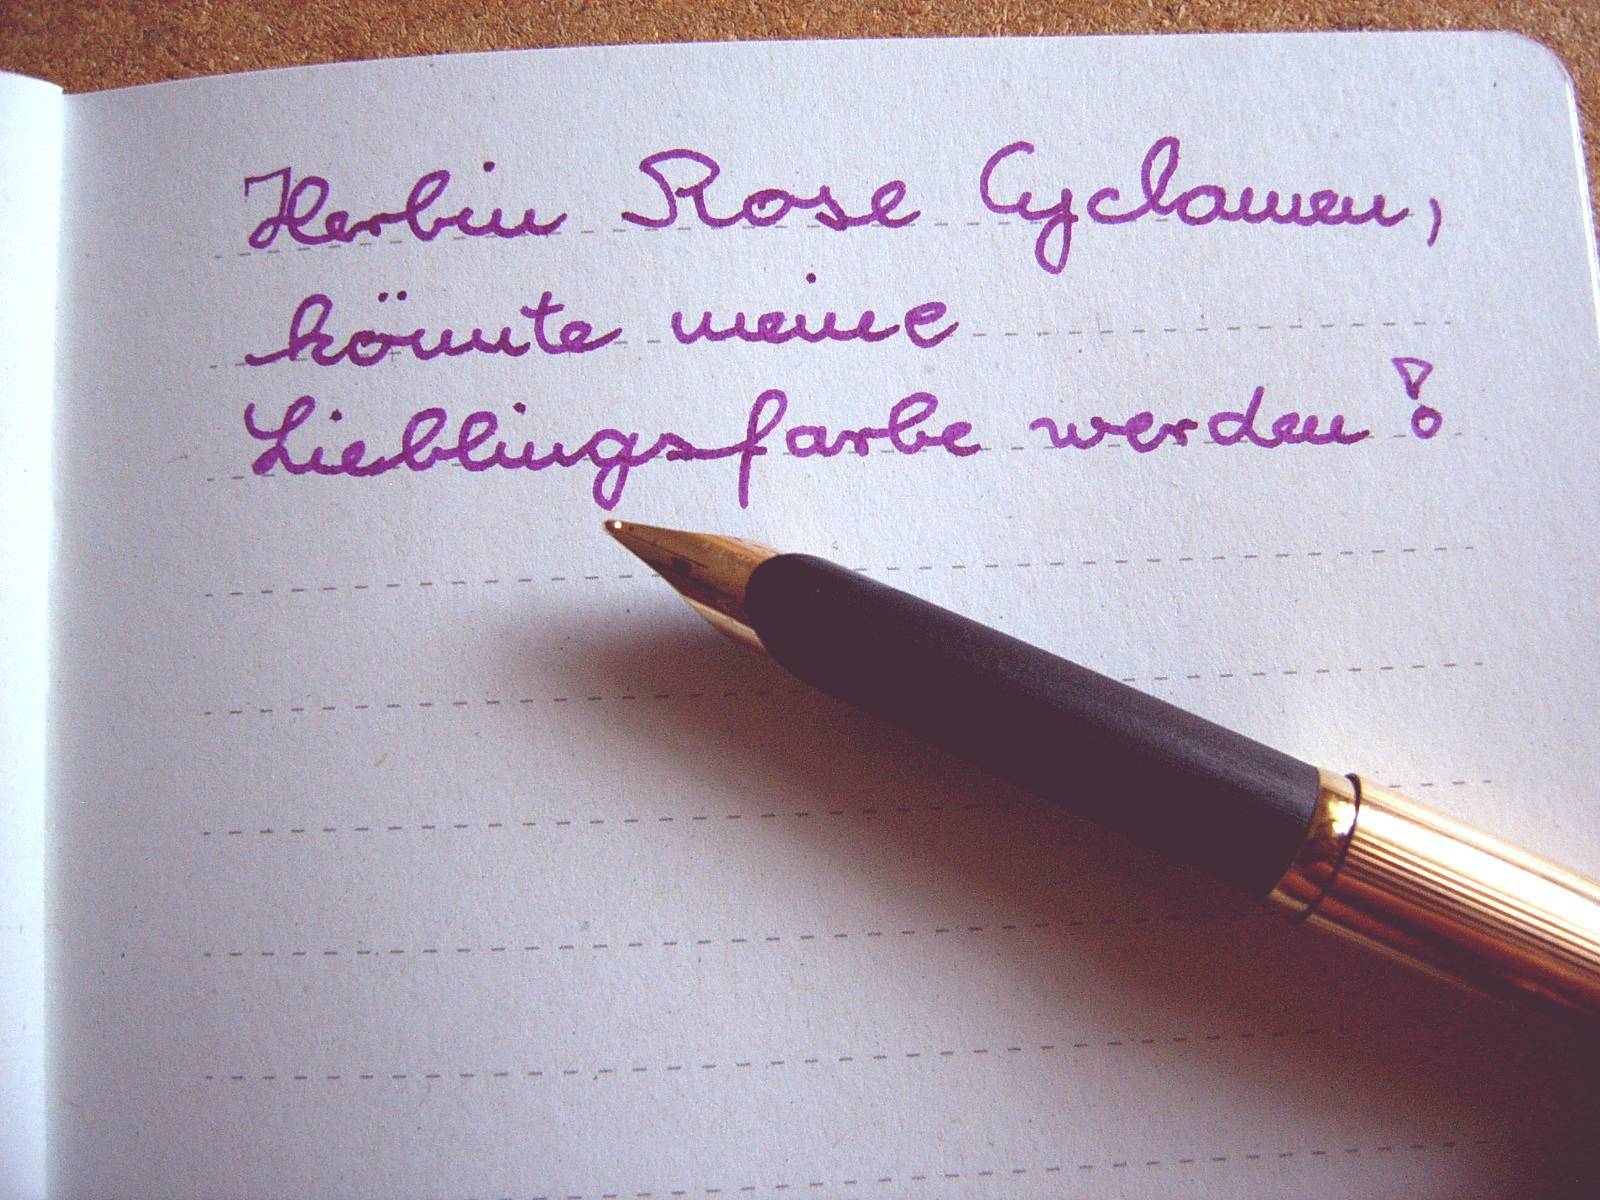 Herbin Rose Cyclamen,
könnte meine
Lieblingsfarbe werden!